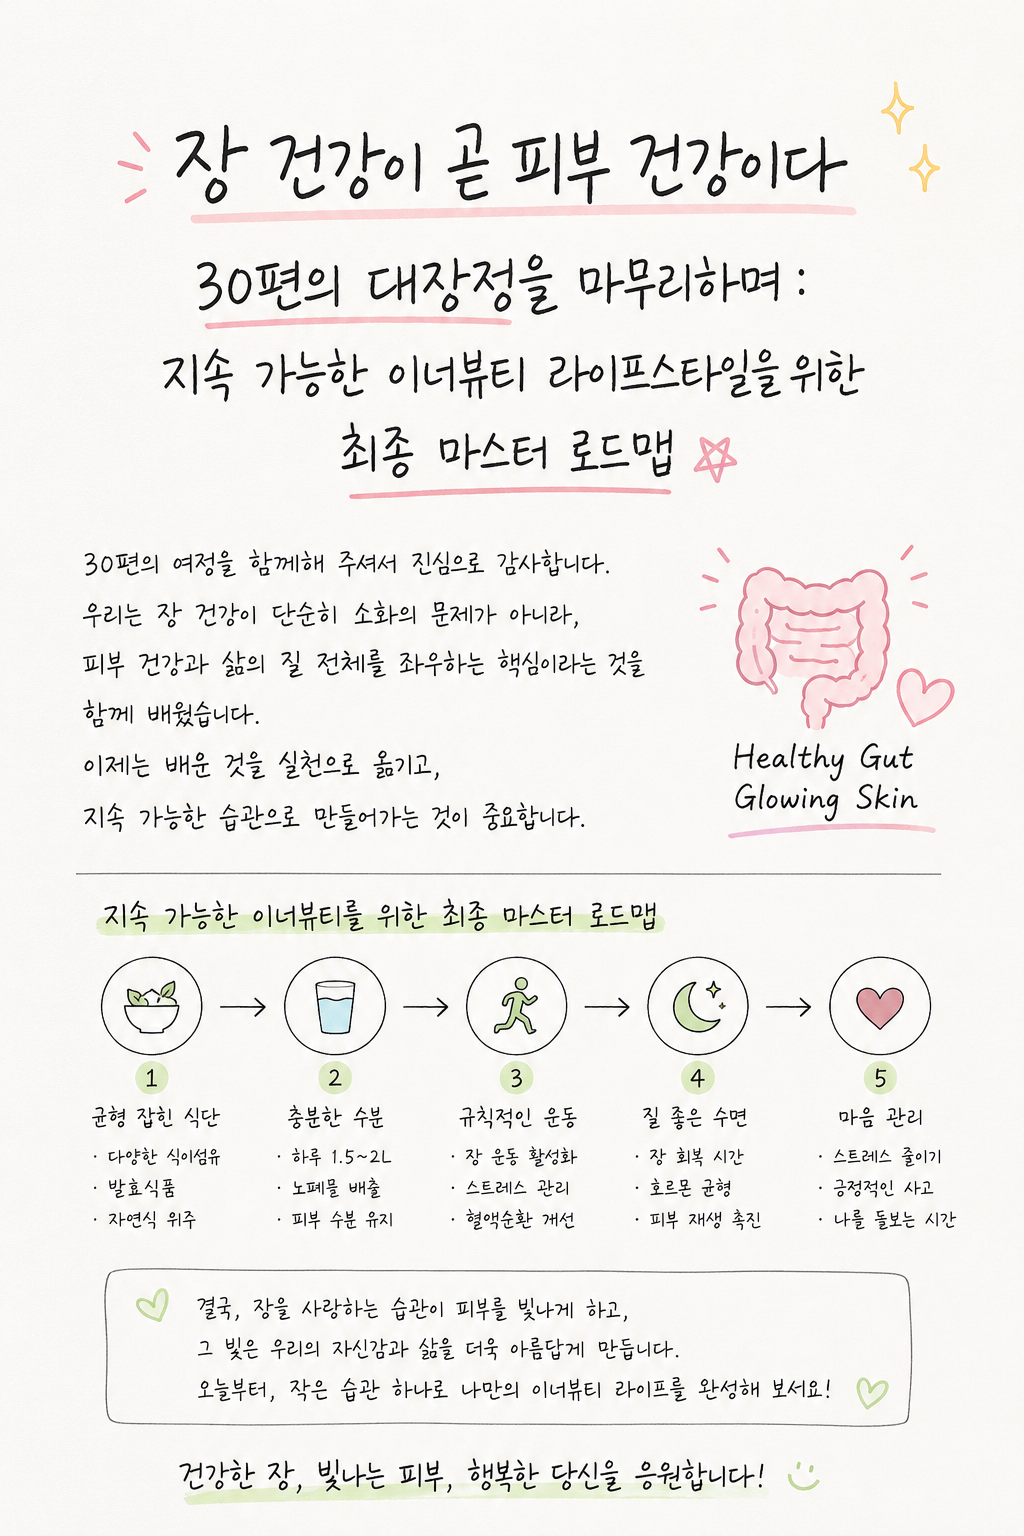 장 건강이 곧 피부 건강이다
30편의 대장정을 마무리하며 :
지속 가능한 이너뷰티 라이프스타일을 위한
최종 마스터 로드맵
30편의 여정을 함께해 주셔서 진심으로 감사합니다.
우리는 장 건강이 단순히 소화의 문제가 아니라,
피부 건강과 삶의 질 전체를 좌우하는 핵심이라는 것을
함께 배웠습니다.
이제는 배운 것을 실천으로 옮기고,
지속 가능한 습관으로 만들어가는 것이 중요합니다.
Healthy Gut
Glowing Skin
지속 가능한 이너뷰티를 위한 최종 마스터 로드맵
1
균형 잡힌 식단
· 다양한 식이섬유
· 발효식품
· 자연식 위주
2
충분한 수분
· 하루 1.5~2L
· 노폐물 배출
· 피부 수분 유지
3
규칙적인 운동
· 장 운동 활성화
· 스트레스 관리
· 혈액순환 개선
4
질 좋은 수면
· 장 회복 시간
· 호르몬 균형
· 피부 재생 촉진
5
마음 관리
· 스트레스 줄이기
· 긍정적인 사고
· 나를 돌보는 시간
결국, 장을 사랑하는 습관이 피부를 빛나게 하고,
그 빛은 우리의 자신감과 삶을 더욱 아름답게 만듭니다.
오늘부터, 작은 습관 하나로 나만의 이너뷰티 라이프를 완성해 보세요!
건강한 장, 빛나는 피부, 행복한 당신을 응원합니다!